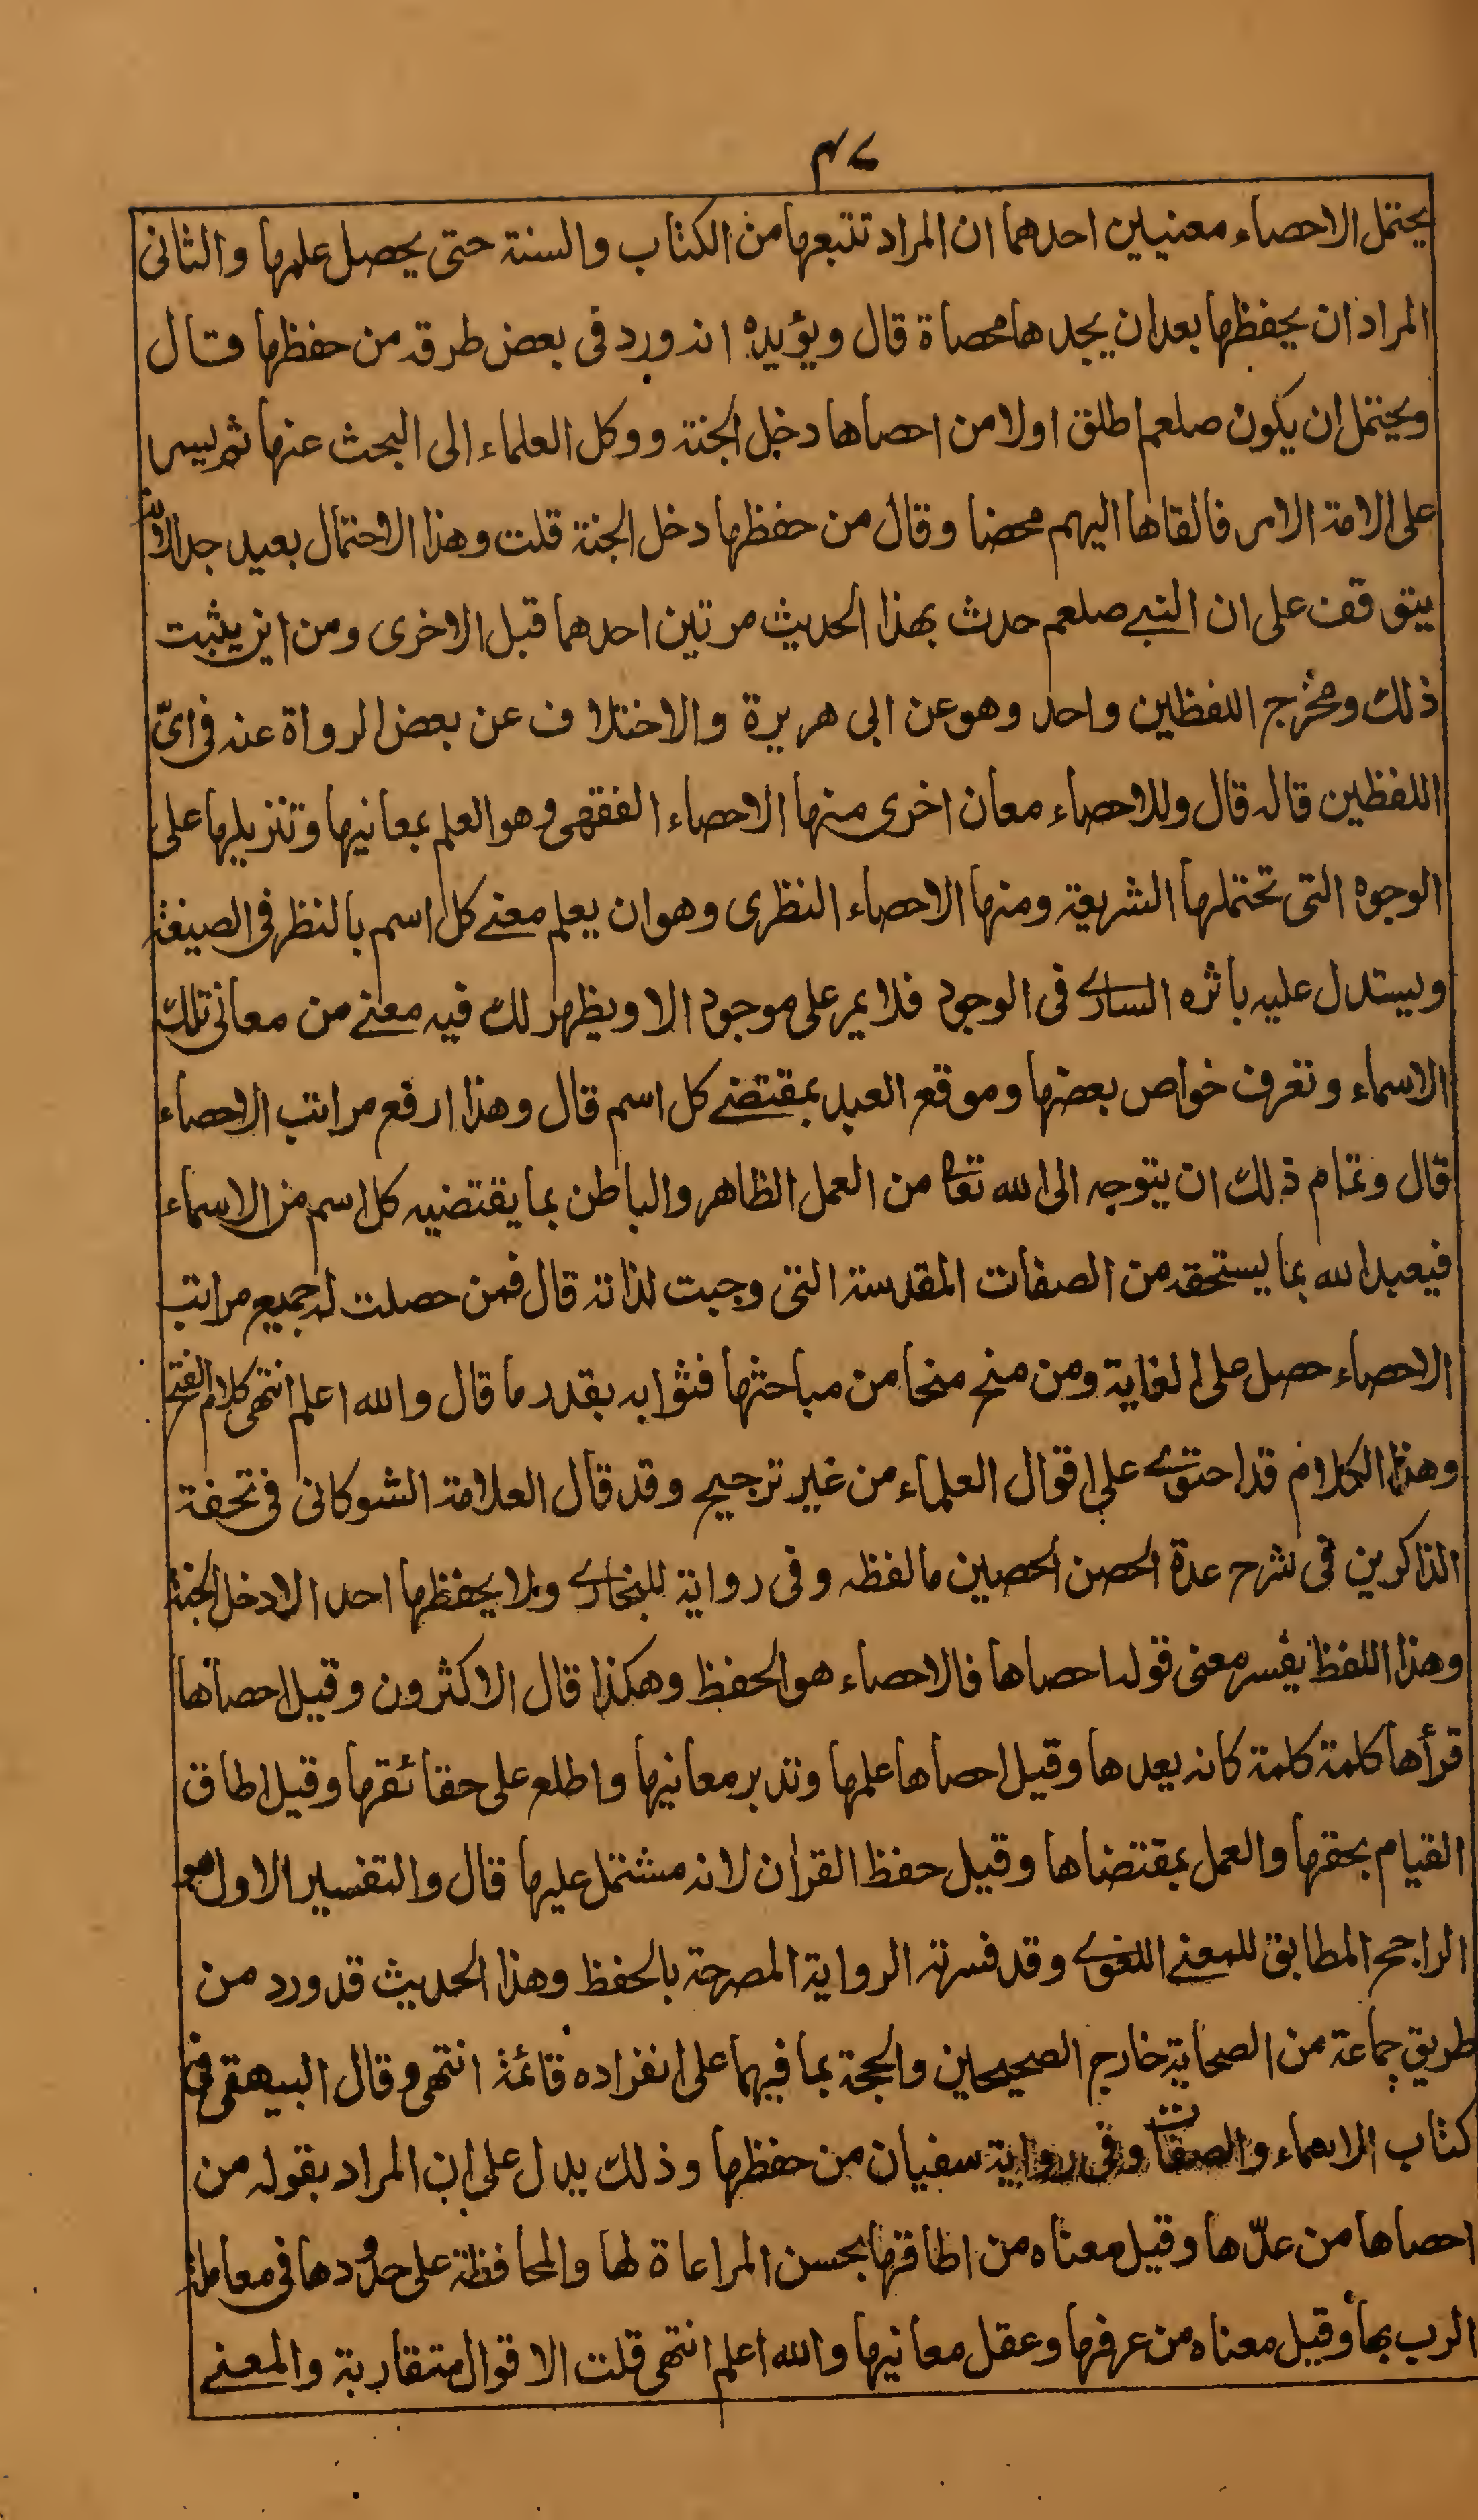 ٤٧
يحتمل الاحصاء معنيين احدهما ان المراد تتبعها من الكتاب والسنة حتى يحصل علمها والثانى
المراد ان يحفظها بعد ان يجدها محصاة قال ويؤيده انه ورد فى بعض طرقه من حفظها قال
ويحتمل ان يكون صلعم اطلق اولا من احصاها دخل الجنة ووكل العلماء الى البحث عنها ثم يسر
على الامة الامر فالقاها اليهم محضا وقال من حفظها دخل الجنة قلت وهذا الاحتمال بعيد جدا لانه
يتوقف على ان النبے صلعم حدث بهذا الحديث مرتين احدهما قبل الاخرى ومن اين يثبت
ذلك ومخرج اللفظين واحد وهو عن ابى هريرة والاختلاف عن بعض الرواة عنه فى اىّ
اللفظين قاله قال وللاحصاء معان اخرى منها الاحصاء الفقهى وهو العلم بمعانيها وتنزيلها على
الوجوه التى تحتملها الشريعة ومنها الاحصاء النظرى وهو ان يعلم معنے كل اسم بالنظر فى الصيغة
ويستدل عليه باثره السارے فى الوجود فلا يمر على موجود الا ويظهر لك فيه معنے من معانى تلك
الاسماء وتعرف خواص بعضها وموقع العبد بمقتضے كل اسم قال وهذا ارفع مراتب الاحصاء
قال وتمام ذلك ان يتوجه الى الله تعا من العمل الظاهر والباطن بما يقتضيه كل اسم من الاسماء
فيعبد الله بما يستحقه من الصفات المقدسة التى وجبت لذاته قال فمن حصلت له جميع مراتب
الاحصاء حصل على الغاية ومن منح منحا من مباحثها فثوابه بقدر ما قال والله اعلم انتهى كلام الفتح
وهذا الكلام قد احتوے على اقوال العلماء من غير ترجيح وقد قال العلامة الشوكانى فى تحفة
الذاكرين فى شرح عدة الحصن الحصين ما لفظه وفى رواية للبخارے ولا يحفظها احد الا دخل الجنة
وهذا اللفظ يفسر معنى قوله احصاها فالاحصاء هو الحفظ وهكذا قال الاكثرون وقيل احصاها
قرأها كلمة كلمة كانه يعدها وقيل احصاها علمها وتدبر معانيها واطلع على حقائقها وقيل اطاق
القيام بحقها والعمل بمقتضاها وقيل حفظ القران لانه مشتمل عليها قال والتفسير الاول هو
الراجح المطابق للمعنے اللغوے وقد فسرته الرواية المصرحة بالحفظ وهذا الحديث قد ورد من
طريق جماعة من الصحابة خارج الصحيحين والحجة بما فيهما على انفراده قائمة انتهى وقال البيهقى فى
كتاب الاسماء والصفات وفى رواية سفيان من حفظها وذلك يدل على ان المراد بقوله من
احصاها من عدّها وقيل معناه من اطاقها بحسن المراعاة لها والمحافظة على حدودها فى معاملة
الرب بها وقيل معناه من عرفها وعقل معانيها والله اعلم انتهى قلت الاقوال متقاربة والمعنے